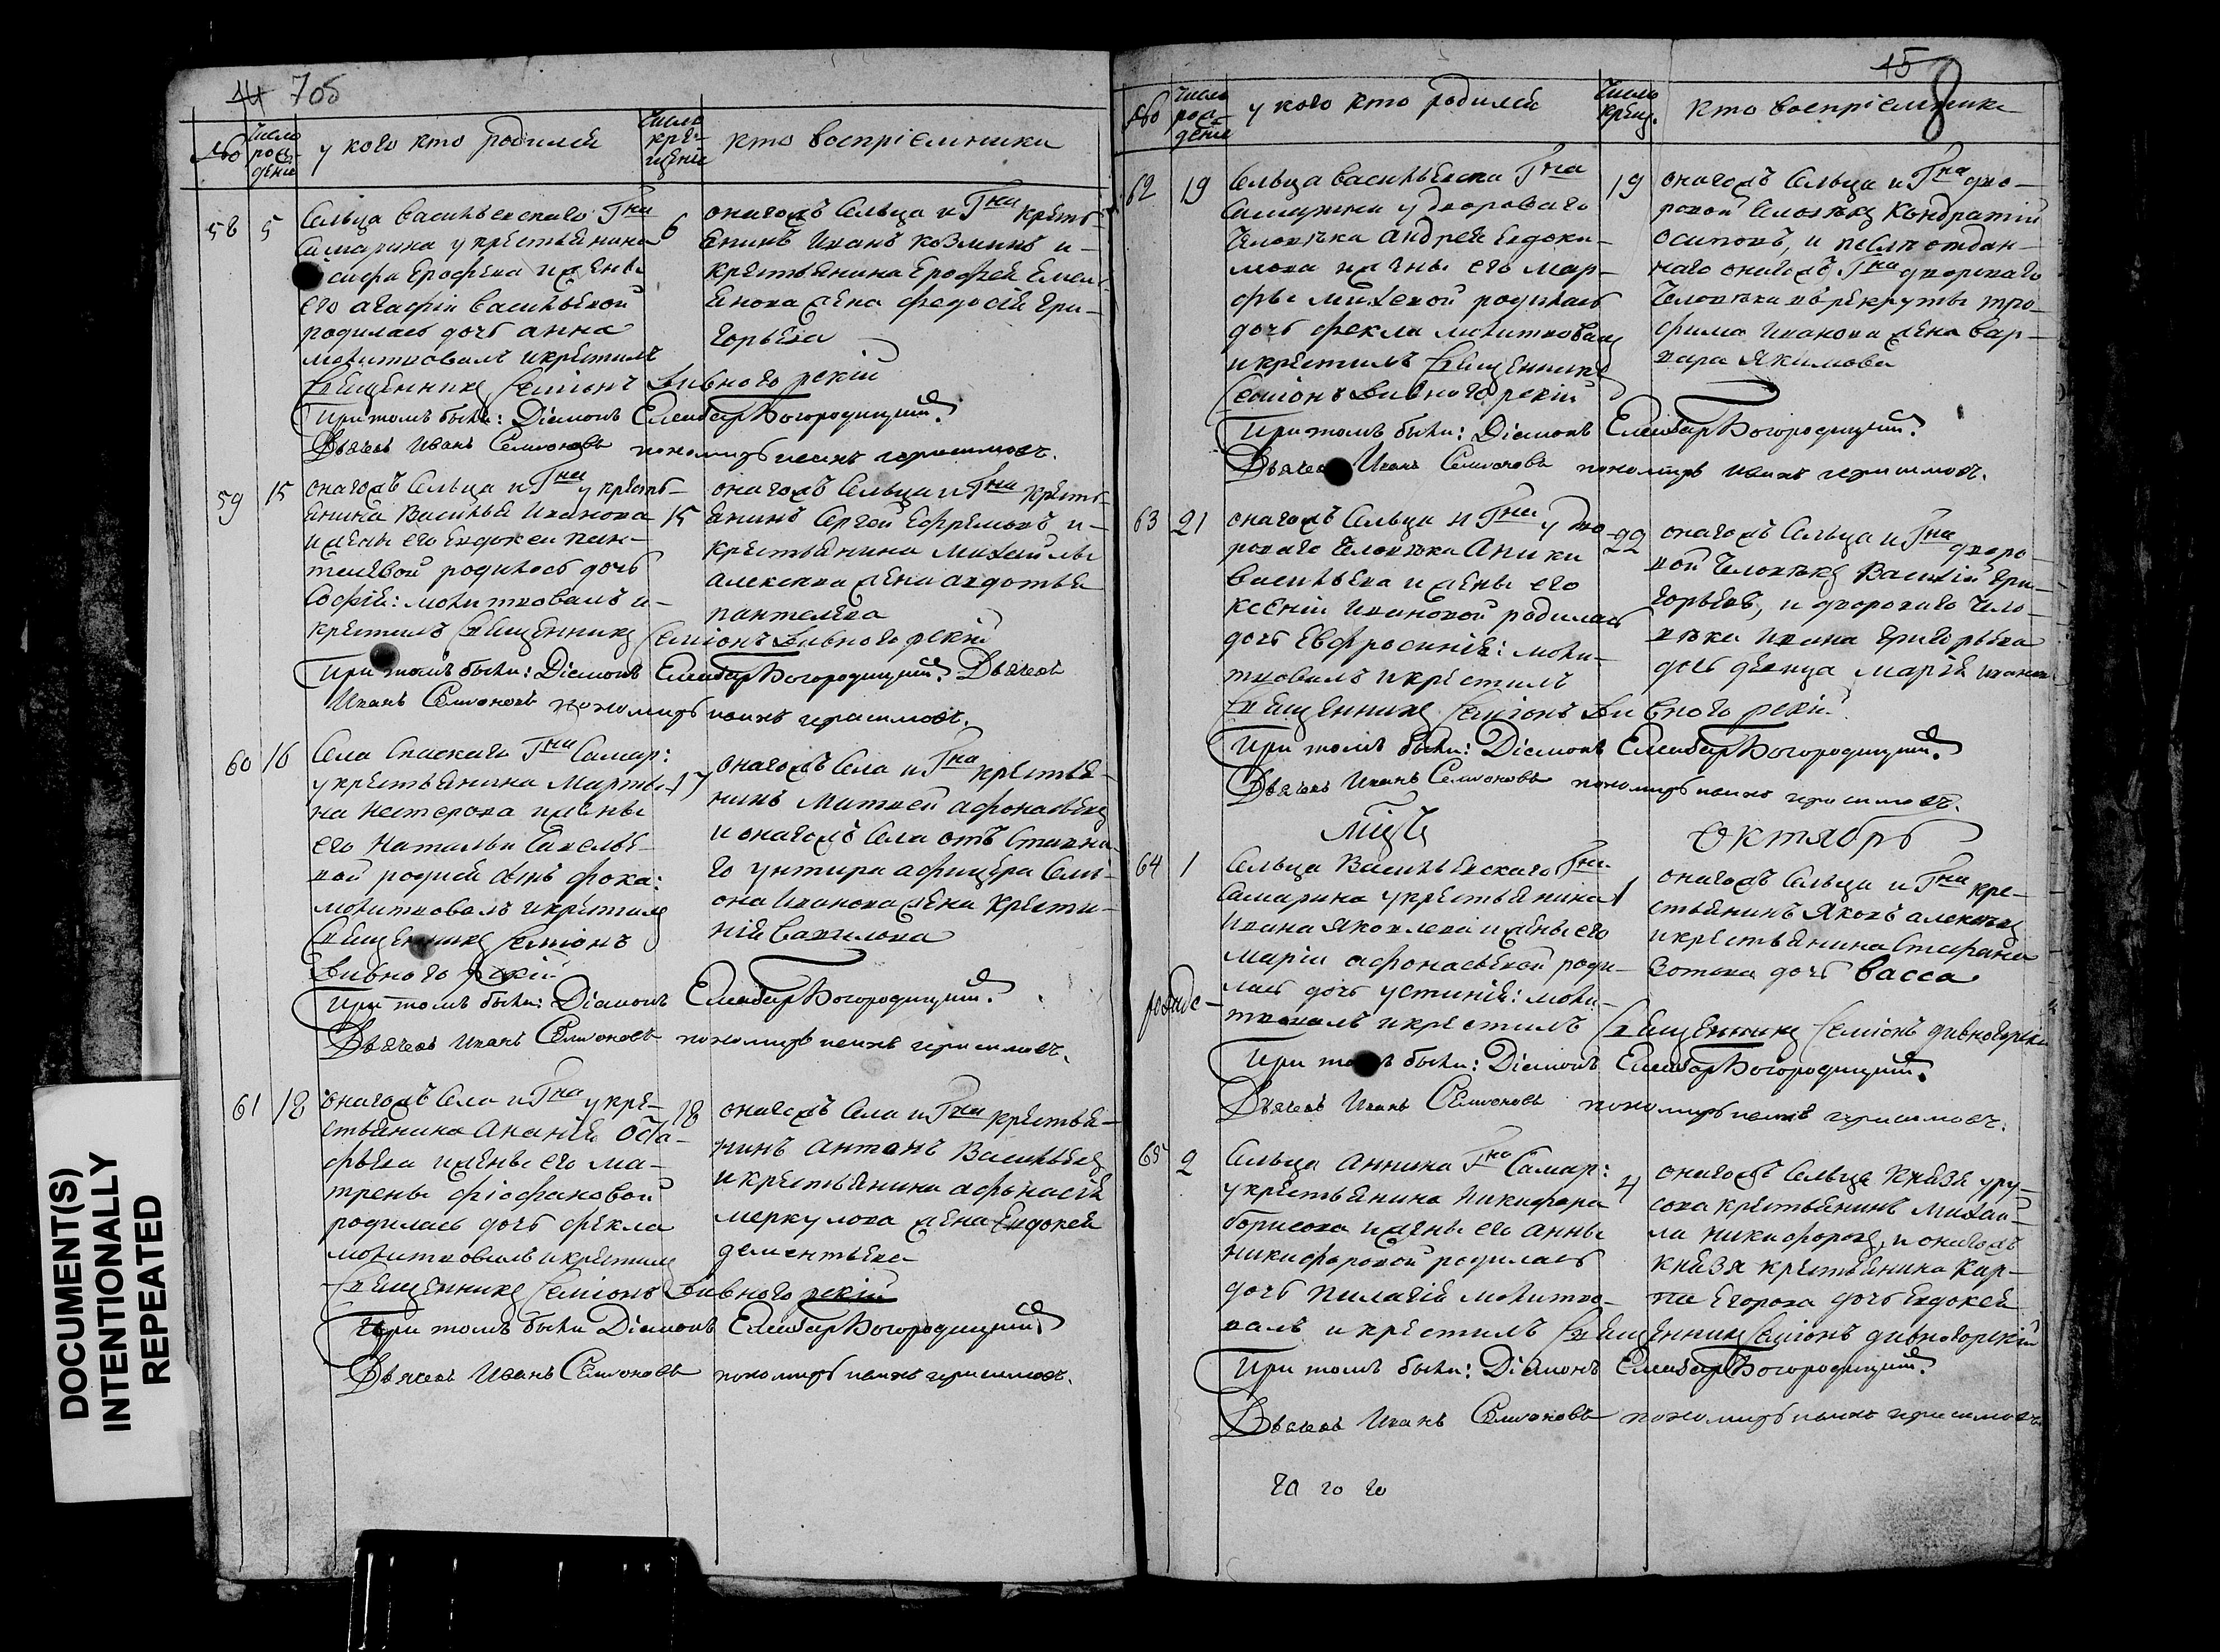 14 706
№
Число рождения
у кого кто родился
Число крещения
кто восприемники
58 5
Сельца Васильевскаго Гна
Самарина у крестьянина
Ерофеева и жены
его Агафiи Васильевой
родилась дочь Анна
молитвовалъ и крестилъ
Священникъ Семiонъ Дивногорскiй
6
оногожъ Сельца и Гна кресть-
янинъ Иванъ Козминъ и
крестьянина Ерофея Емель-
янова жена Федосiя Гри-
горьева
При томъ были: Дiаконъ Елеазаръ Богородицкий.
Дьячекъ Иванъ Семионовъ пономарь иванъ герасимовъ.
59 15
оногожъ Сельца и Гна у кресть-
янина Василья Иванова
и жены его Евдокеи пан-
телевой родилось дочь
Софiя: молитвовалъ и
крестилъ Священникъ Семiонъ Дивногорскiй
15
оногожъ Сельца и Гна кресть-
янинъ Сергей Ефремовъ и
крестьянина Михайлы
Алексева жена авдотья
пантелева
При томъ были: Дiаконъ Елеазаръ Богородицкий. Дьячекъ
Иванъ Семионовъ пономарь иванъ герасимовъ.
60 16
Села Спаскаго Гна Самар:
у крестьянина Марты-
на Нестерова и жены
его Натальи Савелье-
вой родися сынъ фока:
молитвовалъ и крестилъ
Священникъ Семiонъ
Дивногорскiй
17
оногожъ Села и Гна крестья-
нинъ Матвей афонасьевъ
и оногожъ Села отъ Ставна-
го унтира афицера Семи-
она Иванова жена Крести-
нiя Вавилова
При томъ были: Дiаконъ Елеазаръ Богородицкий.
Дьячекъ Иванъ Семионовъ пономарь иванъ герасимовъ.
61 18
оногожъ Села и Гна у кре-
стьянина Ананiя Оста-
фьева и жены его ма-
трены фiофановой
родилась дочь фекла
молитвовалъ и крестилъ
Священникъ Семiонъ Дивногорскiй
18
оногожъ Села и Гна крестья-
нинъ антонъ Васильевъ
и крестьянина афонасiя
меркулова жена Евдокея
дементьева
При томъ были Дiаконъ Елеазаръ Богородицкий.
Дьячекъ Иванъ Семионовъ пономарь иванъ герасимовъ.
15 8
№
Число рождения
у кого кто родился
Число крещ.
кто восприемники
62 19
Сельца Васильевска Гна
Самарина у двороваго
человека Андрея Евдоки-
мова и жены его мар-
фы Михевой родилась
дочь фекла молитвовалъ
и крестилъ Священникъ
Семiонъ Дивногорскiй
19
оногожъ Сельца и Гна дво-
ровой Человекъ Кондратiй
Осиповъ, и после отдан-
наго оногожъ Гна двороваго
Человека в рекруты тро-
фима Иванова жена вар-
вара Якимова
При томъ были: Дiаконъ Елеазаръ Богородицкий.
Дьячекъ Иванъ Семионовъ пономарь иванъ герасимовъ.
63 21
оногожъ Сельца и Гна у дво-
роваго Человека Аники
Васильева и жены его
Ксенiи Ивановой родилась
дочь Евфросинiя: моли-
твовалъ и крестилъ
Священникъ Семiонъ Дивногорскiй
22
оногожъ Сельца и Гна дворо-
вой Человекъ Василiй Гри-
горьевъ, и двороваго Чело-
века Ивана Григорьева
дочь девица Марiя иванова
При томъ были: Дiаконъ Елеазаръ Богородицкий.
Дьячекъ Иванъ Семионовъ пономарь иванъ герасимовъ.
мцъ Октябрь
64 1
Сельца Васильевскаго Гна
Самарина у крестьянина
Ивана Яковлева и жены его
Марiи афонасьевой роди-
лась дочь устинiя: моли-
твовалъ и крестилъ Священникъ Семiонъ дивногорскiй
1
оногожъ Сельца и Гна кре-
стьянинъ Яковъ алексевъ
и крестьянина Стефана
Зотова дочь Васса
При томъ были: Дiаконъ Елеазаръ Богородицкий.
Дьячекъ Иванъ Семионовъ пономарь иванъ герасимовъ.
65 2
Сельца Аннина Гна Самар:
у крестьянина Никифора
борисова и жены его анны
никифоровой родилась
дочь Пилагiя молитво-
валъ и крестилъ Священникъ Семiонъ дивногорскiй
4
оногожъ Сельца Князя Уру-
сова крестьянинъ Михай-
ла никифоровъ, и оногожъ
Князя крестьянина Кар-
па Егорова дочь Евдокея
При томъ были: Дiаконъ Елеазаръ Богородицкий.
Дьячекъ Иванъ Семионовъ пономарь иванъ герасимовъ
го го го
DOCUMENT(S)
INTENTIONALLY
REPEATED